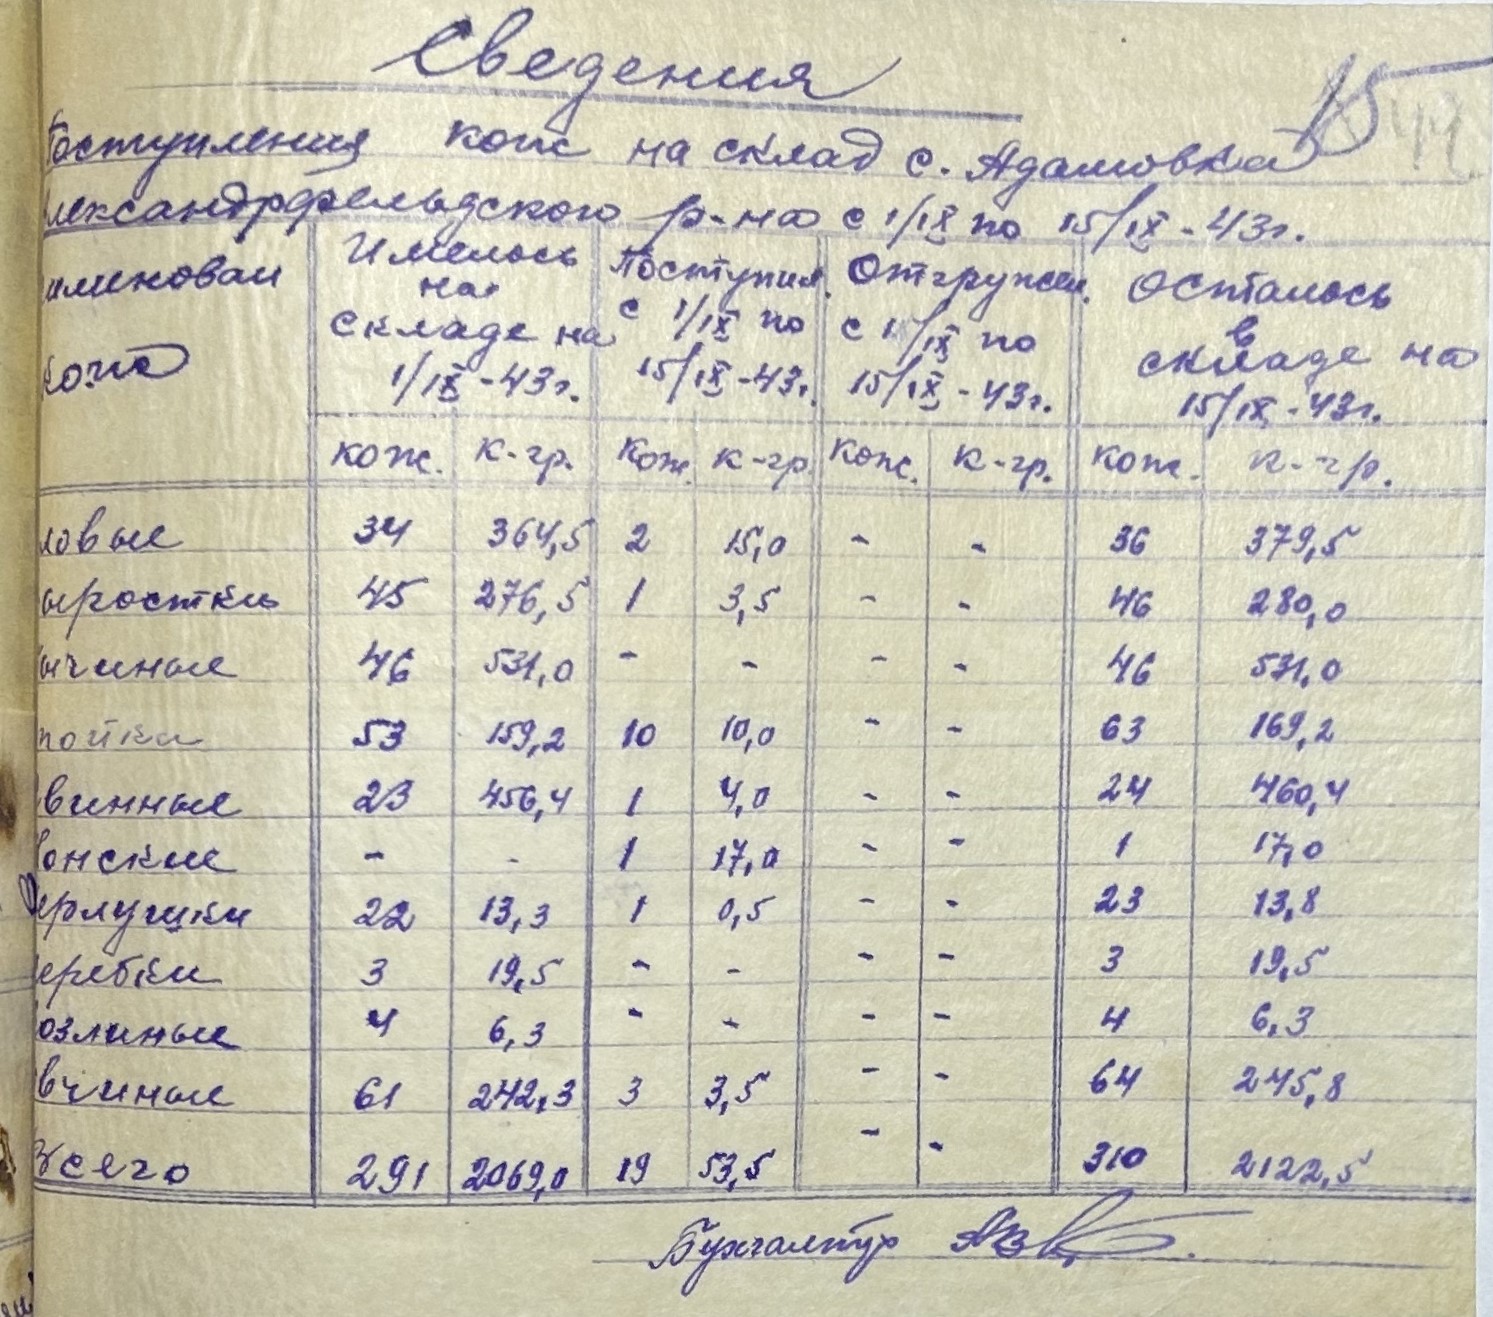 Сведения
15
44
Поступления кож на склад с. Адамовка
лександрфельдского р-на с 1/IX по 15/IX - 43г.
именован кож | Имелось на складе на 1/IX - 43г. | Поступил. с 1/IX по 15/IX - 43г. | Отгружен. с 1/IX по 15/IX - 43г. | Осталось в складе на 15/IX - 43г.
кож. | к-гр. | кож. | к-гр. | кож. | к-гр. | кож. | к-гр.
ловые | 34 | 364,5 | 2 | 15,0 | - | - | 36 | 379,5
ыростки | 45 | 276,5 | 1 | 3,5 | - | - | 46 | 280,0
ычиные | 46 | 531,0 | - | - | - | - | 46 | 531,0
пойки | 53 | 159,2 | 10 | 10,0 | - | - | 63 | 169,2
винные | 23 | 456,4 | 1 | 4,0 | - | - | 24 | 460,4
онские | - | - | 1 | 17,0 | - | - | 1 | 17,0
ерлушки | 22 | 13,3 | 1 | 0,5 | - | - | 23 | 13,8
еребки | 3 | 19,5 | - | - | - | - | 3 | 19,5
озлиные | 4 | 6,3 | - | - | - | - | 4 | 6,3
вчиные | 61 | 242,3 | 3 | 3,5 | - | - | 64 | 245,8
Всего | 291 | 2069,0 | 19 | 53,5 | - | - | 310 | 2122,5
Бухгалтер